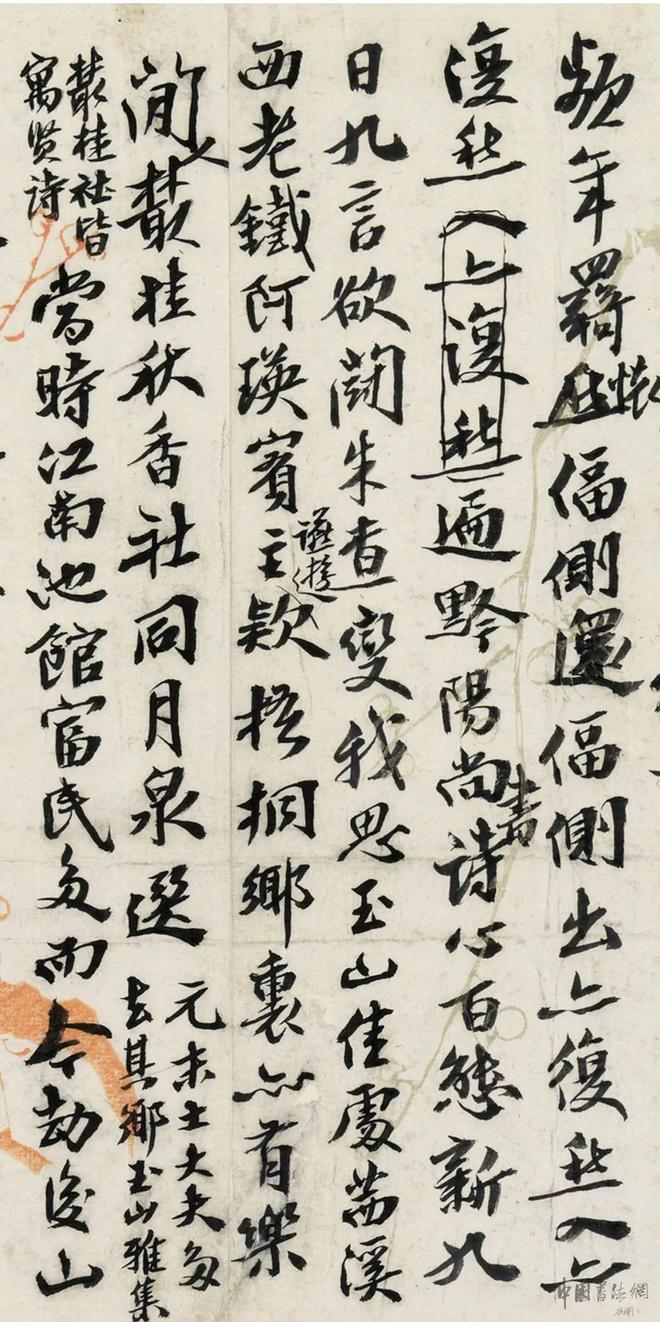 頻年羇愁懷偪側還偪側出亦復愁入亦
復愁入亦復愁遍黔陽尚書詩心百態新九
日九言欲鬪朱查變我思玉山佳處苕溪
西老鐵阿瑛賓主欵讌遊梧桐鄉裏亦有樂
叢桂秋香社同月泉選
元末士大夫多
去其鄉玉山雅集
叢桂社皆
寓賢詩
當時江南池館富民多而今劫後山
中國書法網